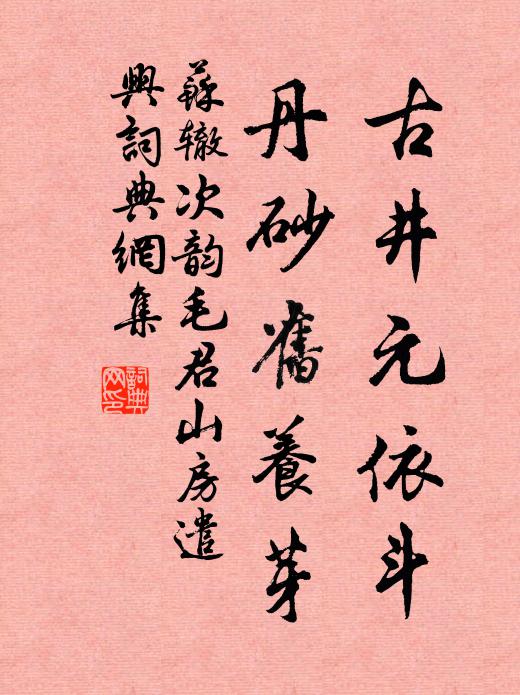 古井元依斗
丹砂舊養芽
蘇辙次韵毛君山房遣
興詞典網集
詞典网印